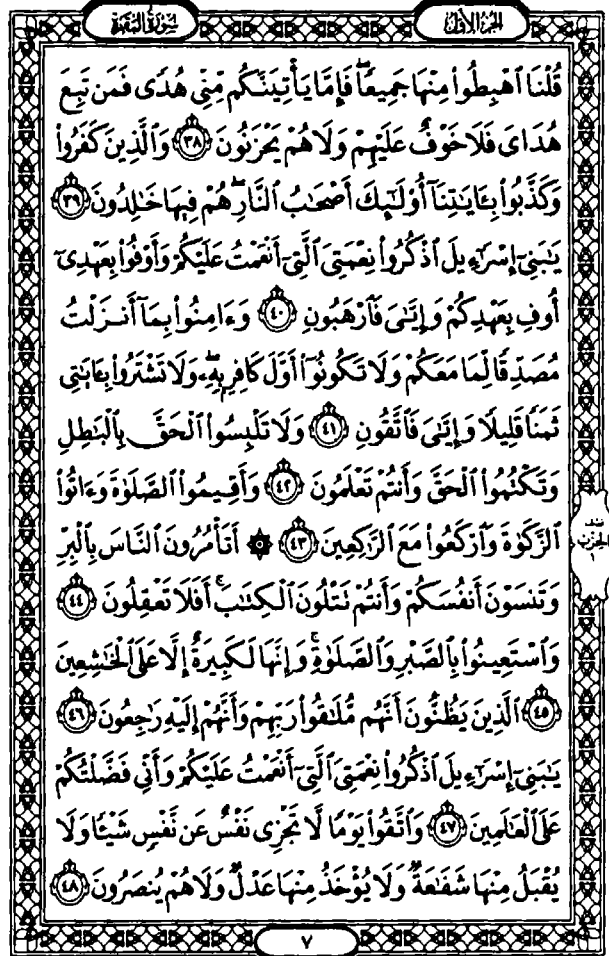 الجزء الأول
سورة البقرة
قُلْنَا ٱهْبِطُوا۟ مِنْهَا جَمِيعًا ۖ فَإِمَّا يَأْتِيَنَّكُم مِّنِّى هُدًى فَمَن تَبِعَ
هُدَاىَ فَلَا خَوْفٌ عَلَيْهِمْ وَلَا هُمْ يَحْزَنُونَ ﴿٣٨﴾ وَٱلَّذِينَ كَفَرُوا۟
وَكَذَّبُوا۟ بِـَٔايَـٰتِنَآ أُو۟لَـٰٓئِكَ أَصْحَـٰبُ ٱلنَّارِ ۖ هُمْ فِيهَا خَـٰلِدُونَ ﴿٣٩﴾
يَـٰبَنِىٓ إِسْرَٰٓءِيلَ ٱذْكُرُوا۟ نِعْمَتِىَ ٱلَّتِىٓ أَنْعَمْتُ عَلَيْكُمْ وَأَوْفُوا۟ بِعَهْدِىٓ
أُوفِ بِعَهْدِكُمْ وَإِيَّـٰىَ فَٱرْهَبُونِ ﴿٤٠﴾ وَءَامِنُوا۟ بِمَآ أَنزَلْتُ
مُصَدِّقًا لِّمَا مَعَكُمْ وَلَا تَكُونُوٓا۟ أَوَّلَ كَافِرٍۭ بِهِۦ ۖ وَلَا تَشْتَرُوا۟ بِـَٔايَـٰتِى
ثَمَنًا قَلِيلًا وَإِيَّـٰىَ فَٱتَّقُونِ ﴿٤١﴾ وَلَا تَلْبِسُوا۟ ٱلْحَقَّ بِٱلْبَـٰطِلِ
وَتَكْتُمُوا۟ ٱلْحَقَّ وَأَنتُمْ تَعْلَمُونَ ﴿٤٢﴾ وَأَقِيمُوا۟ ٱلصَّلَوٰةَ وَءَاتُوا۟
ٱلزَّكَوٰةَ وَٱرْكَعُوا۟ مَعَ ٱلرَّٰكِعِينَ ﴿٤٣﴾ ۞ أَتَأْمُرُونَ ٱلنَّاسَ بِٱلْبِرِّ
وَتَنسَوْنَ أَنفُسَكُمْ وَأَنتُمْ تَتْلُونَ ٱلْكِتَـٰبَ ۚ أَفَلَا تَعْقِلُونَ ﴿٤٤﴾
وَٱسْتَعِينُوا۟ بِٱلصَّبْرِ وَٱلصَّلَوٰةِ ۚ وَإِنَّهَا لَكَبِيرَةٌ إِلَّا عَلَى ٱلْخَـٰشِعِينَ
﴿٤٥﴾ ٱلَّذِينَ يَظُنُّونَ أَنَّهُم مُّلَـٰقُوا۟ رَبِّهِمْ وَأَنَّهُمْ إِلَيْهِ رَٰجِعُونَ ﴿٤٦﴾
يَـٰبَنِىٓ إِسْرَٰٓءِيلَ ٱذْكُرُوا۟ نِعْمَتِىَ ٱلَّتِىٓ أَنْعَمْتُ عَلَيْكُمْ وَأَنِّى فَضَّلْتُكُمْ
عَلَى ٱلْعَـٰلَمِينَ ﴿٤٧﴾ وَٱتَّقُوا۟ يَوْمًا لَّا تَجْزِى نَفْسٌ عَن نَّفْسٍ شَيْـًٔا وَلَا
يُقْبَلُ مِنْهَا شَفَـٰعَةٌ وَلَا يُؤْخَذُ مِنْهَا عَدْلٌ وَلَا هُمْ يُنصَرُونَ ﴿٤٨﴾
نصف
الحزب
١
٧